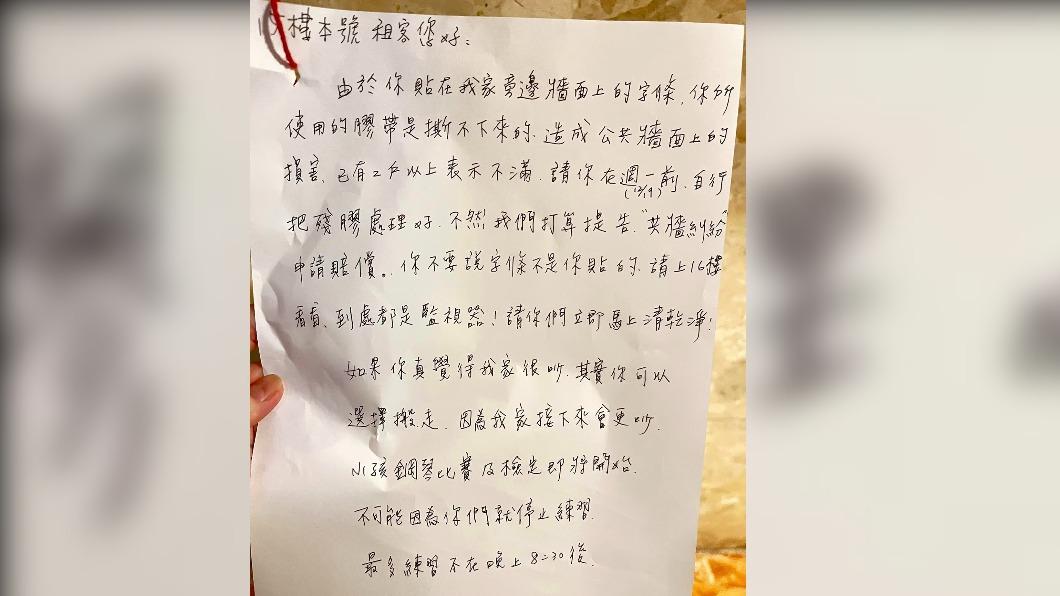 樓本號租客您好:
由於你貼在我家旁邊牆面上的字條,你所
使用的膠帶是撕不下來的.造成公共牆面上的
損害,已有2戶以上表示不滿.請你在週一前.自行
(12/19)
把殘膠處理好.不然我們打算提告"共牆糾紛"
申請賠償。你不要說字條不是你貼的.請上16樓
看看,到處都是監視器!請你們立即馬上清乾淨!
如果你真覺得我家很吵.其實你可以
選擇搬走.因為我家接下來會更吵.
小孩鋼琴比賽及檢定即將開始.
不可能因為你們就停止練習.
最多練習不在晚上8:30後.